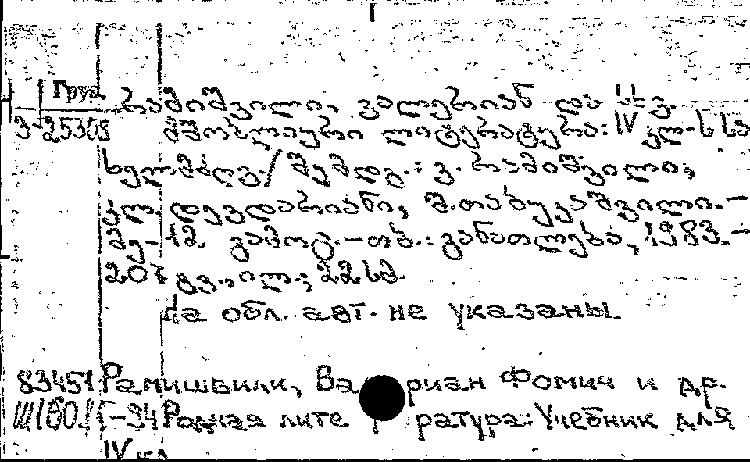 Груз
რამიშვილი, ვალერიან და სხვ.
3-25305 მშობლიური ლიტერატურა: IV კლ-ს სა
ხელმძღვ./ შემდგ.: ვ. რამიშვილი,
დევდარიანი, შ. თაბუკაშვილი.-
მე-12 გამოც.-თბ.: განათლება, 1983.-
207 გვ., ილ.; 22 სმ.
На обл. авт. не указаны.
83451 Рамишвили, Ва риан Фомич и др.
-34 Родная лите ратура: Учебник для
IV кл